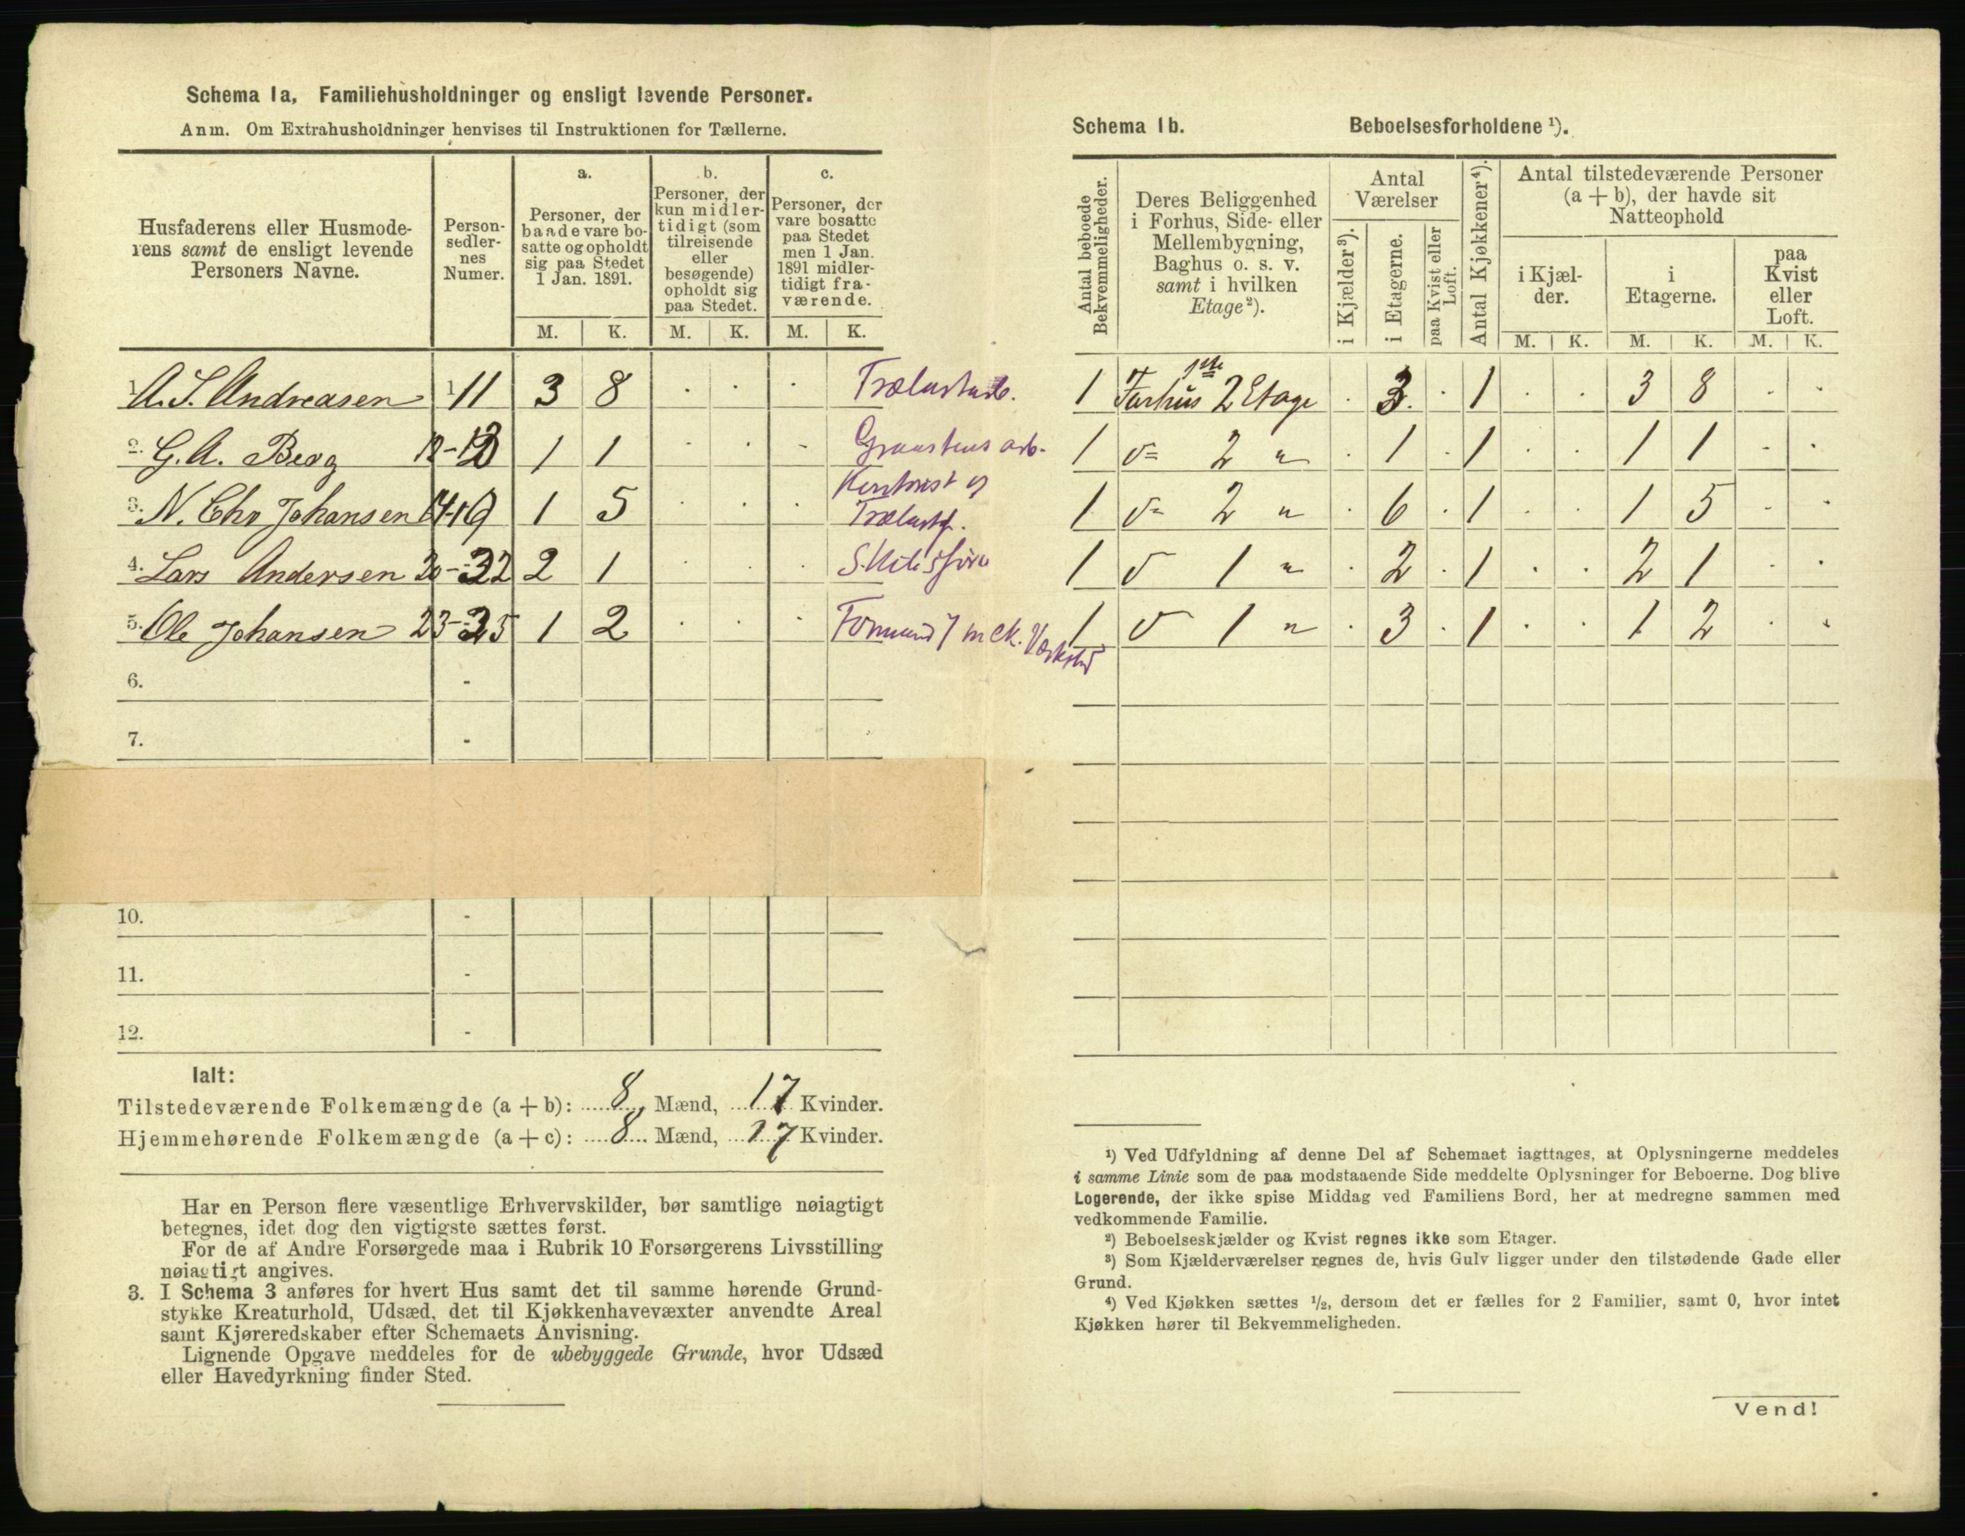 Schema 1a, Familiehusholdninger og ensligt levende Personer.
Anm. Om Extrahusholdninger henvises til Instruktionen for Tællerne.
Husfaderens eller Husmode-
rens samt de ensligt levende
Personers Navne.
Person-
sedler-
nes
Numer.
a.
Personer, der
baade vare bo-
satte og opholdt
sig paa Stedet
1 Jan. 1891.
b.
Personer, der
kun midler-
tidigt (som
tilreisende
eller
besøgende)
opholdt sig
paa Stedet.
c.
Personer, der
vare bosatte
paa Stedet
men 1 Jan.
1891 midler-
tidigt fra-
værende.
M. K. M. K. M. K.
1. A. S. Andreasen 1-11 3 8 . . .
2. G. A. Berg 12-13 1 1 . . .
3. N. Chr Johansen 14-19 1 5 . . .
4. Lars Andersen 20-22 2 1 . . .
5. Ole Johansen 23-25 1 2 . . .
6. -
7. -
10. -
11. -
12. -
Ialt:
Tilstedeværende Folkemængde (a + b): 8 Mænd, 17 Kvinder.
Hjemmehørende Folkemængde (a + c): 8 Mænd, 17 Kvinder.
Har en Person flere væsentlige Erhvervskilder, bør samtlige nøiagtigt
betegnes, idet dog den vigtigste sættes først.
For de af Andre Forsørgede maa i Rubrik 10 Forsørgerens Livsstilling
nøiagtigt angives.
3. I Schema 3 anføres for hvert Hus samt det til samme hørende Grund-
stykke Kreaturhold, Udsæd, det til Kjøkkenhavevæxter anvendte Areal
samt Kjøreredskaber efter Schemaets Anvisning.
Lignende Opgave meddeles for de ubebyggede Grunde, hvor Udsæd
eller Havedyrkning finder Sted.
Schema 1b. Beboelsesforholdene ¹).
Antal beboede
Bekvemmeligheder.
Deres Beliggenhed
i Forhus, Side- eller
Mellembygning,
Baghus o. s. v.
samt i hvilken
Etage²).
Antal
Værelser
i Kjælder³).
i Etagerne.
paa Kvist eller
Loft.
Antal Kjøkkener⁴).
Antal tilstedeværende Personer
(a + b), der havde sit
Natteophold
i Kjæl-
der.
i
Etagerne.
paa
Kvist
eller
Loft.
M. K. M. K. M. K.
1ste
1 Forhus 2 Etage . 3 . 1 . . 3 8 . .
1 d= 2 " . 1 . 1 . . 1 1 . .
1 d= 2 " . 6 . 1 . . 1 5 . .
1 d 1 " . 2 . 1 . . 2 1 . .
1 d 1 " . 3 . 1 . . 1 2 . .
¹) Ved Udfyldning af denne Del af Schemaet iagttages, at Oplysningerne meddeles
i samme Linie som de paa modstaaende Side meddelte Oplysninger for Beboerne. Dog blive
Logerende, der ikke spise Middag ved Familiens Bord, her at medregne sammen med
vedkommende Familie.
²) Beboelseskjælder og Kvist regnes ikke som Etager.
³) Som Kjælderværelser regnes de, hvis Gulv ligger under den tilstødende Gade eller
Grund.
⁴) Ved Kjøkken sættes ½, dersom det er fælles for 2 Familier, samt 0, hvor intet
Kjøkken hører til Bekvemmeligheden.
Vend!